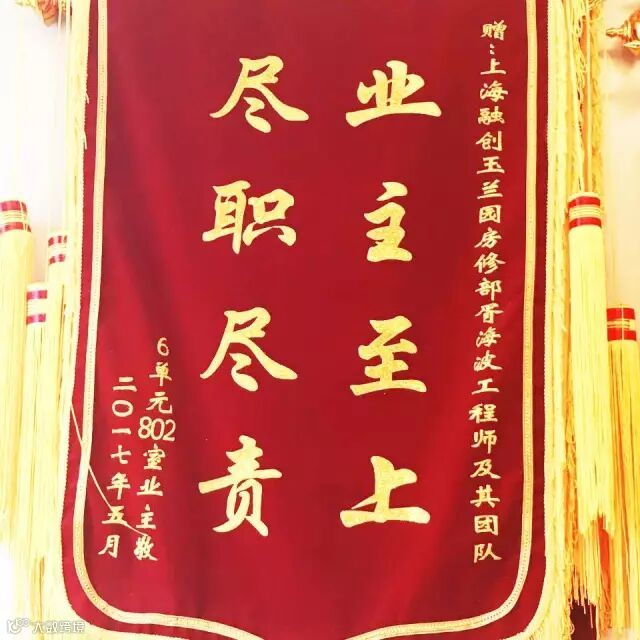 赠：上海融创玉兰园房修部胥海波工程师及其团队
业主至上
尽职尽责
6单元802室业主敬
二〇一七年五月
大数跨境